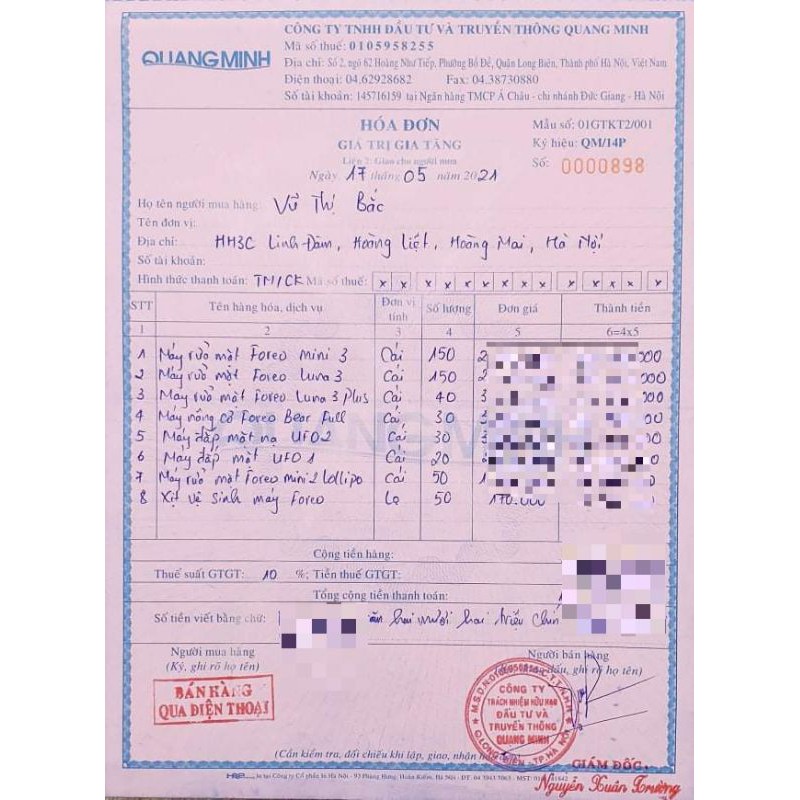 QUANGMINH
CÔNG TY TNHH ĐẦU TƯ VÀ TRUYỀN THÔNG QUANG MINH
Mã số thuế: 0105958255
Địa chỉ: Số 2, ngõ 62 Hoàng Như Tiếp, Phường Bồ Đề, Quận Long Biên, Thành phố Hà Nội, Việt Nam
Điện thoại: 04.62928682 Fax: 04.38730880
Số tài khoản: 145716159 tại Ngân hàng TMCP Á Châu - chi nhánh Đức Giang - Hà Nội
HÓA ĐƠN
GIÁ TRỊ GIA TĂNG
Liên 2: Giao cho người mua
Ngày 17 tháng 05 năm 2021
Mẫu số: 01GTKT2/001
Ký hiệu: QM/14P
Số: 0000898
Họ tên người mua hàng: Vũ Thị Bắc
Tên đơn vị:
Địa chỉ: HH3C Linh Đàm, Hoàng Liệt, Hoàng Mai, Hà Nội
Số tài khoản:
Hình thức thanh toán: TM/CK Mã số thuế: x x x x x x x x x x x x x
STT Tên hàng hóa, dịch vụ Đơn vị tính Số lượng Đơn giá Thành tiền
1 2 3 4 5 6=4x5
1 Máy rửa mặt Foreo mini 3 Cái 150 2 000
2 Máy rửa mặt Foreo Luna 3 Cái 150 2 000
3 Máy rửa mặt Foreo Luna 3 Plus Cái 40 3 000
4 Máy nâng cơ Foreo Bear Full Cái 30 3
5 Máy đắp mặt nạ UFO 2 Cái 30 3
6 Máy đắp mặt UFO 1 Cái 20 2 0
7 Máy rửa mặt Foreo mini 2 Lollipo Cái 50 1
8 Xịt vệ sinh máy Foreo Lọ 50 170.000
Cộng tiền hàng:
Thuế suất GTGT: 10 %; Tiền thuế GTGT:
Tổng cộng tiền thanh toán: 1
Số tiền viết bằng chữ: hai mươi hai triệu
Người mua hàng
(Ký, ghi rõ họ tên)
Người bán hàng
đấu, ghi rõ họ tên)
BÁN HÀNG
QUA ĐIỆN THOẠI
CÔNG TY
TRÁCH NHIỆM HỮU HẠN
ĐẦU TƯ VÀ
TRUYỀN THÔNG
QUANG MINH
Q.LONG BIÊN - TP.HÀ NỘI
(Cần kiểm tra, đối chiếu khi lập, giao, nhận
GIÁM ĐỐC
Nguyễn Xuân Trường